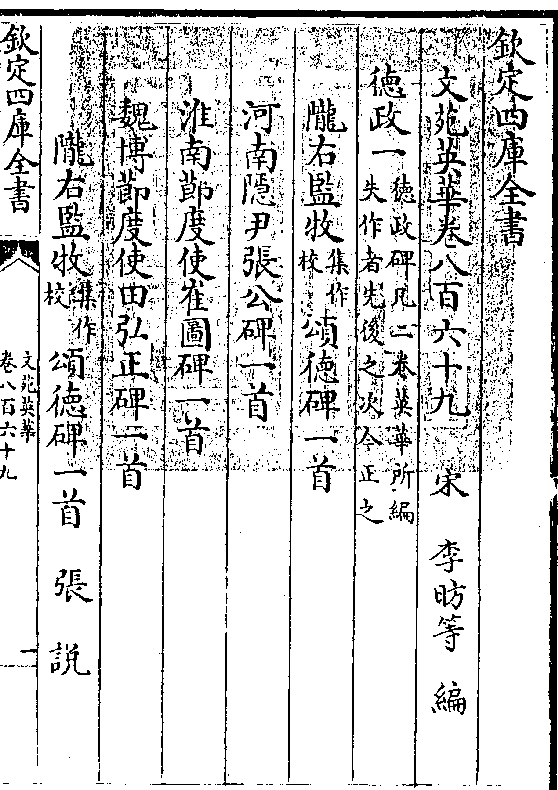 欽定四庫全書
文苑英華卷八百六十九　宋　李昉等　編
德政一德政碑凡二卷英華所編失作者先後之次今正之
隴右監牧集作校頌德碑一首
河南隱尹張公碑一首
淮南節度使崔圖碑一首
魏博節度使田弘正碑一首
隴右監牧集作校頌德碑一首　張說
欽定四庫全書
文苑英華
卷八百六十九
一